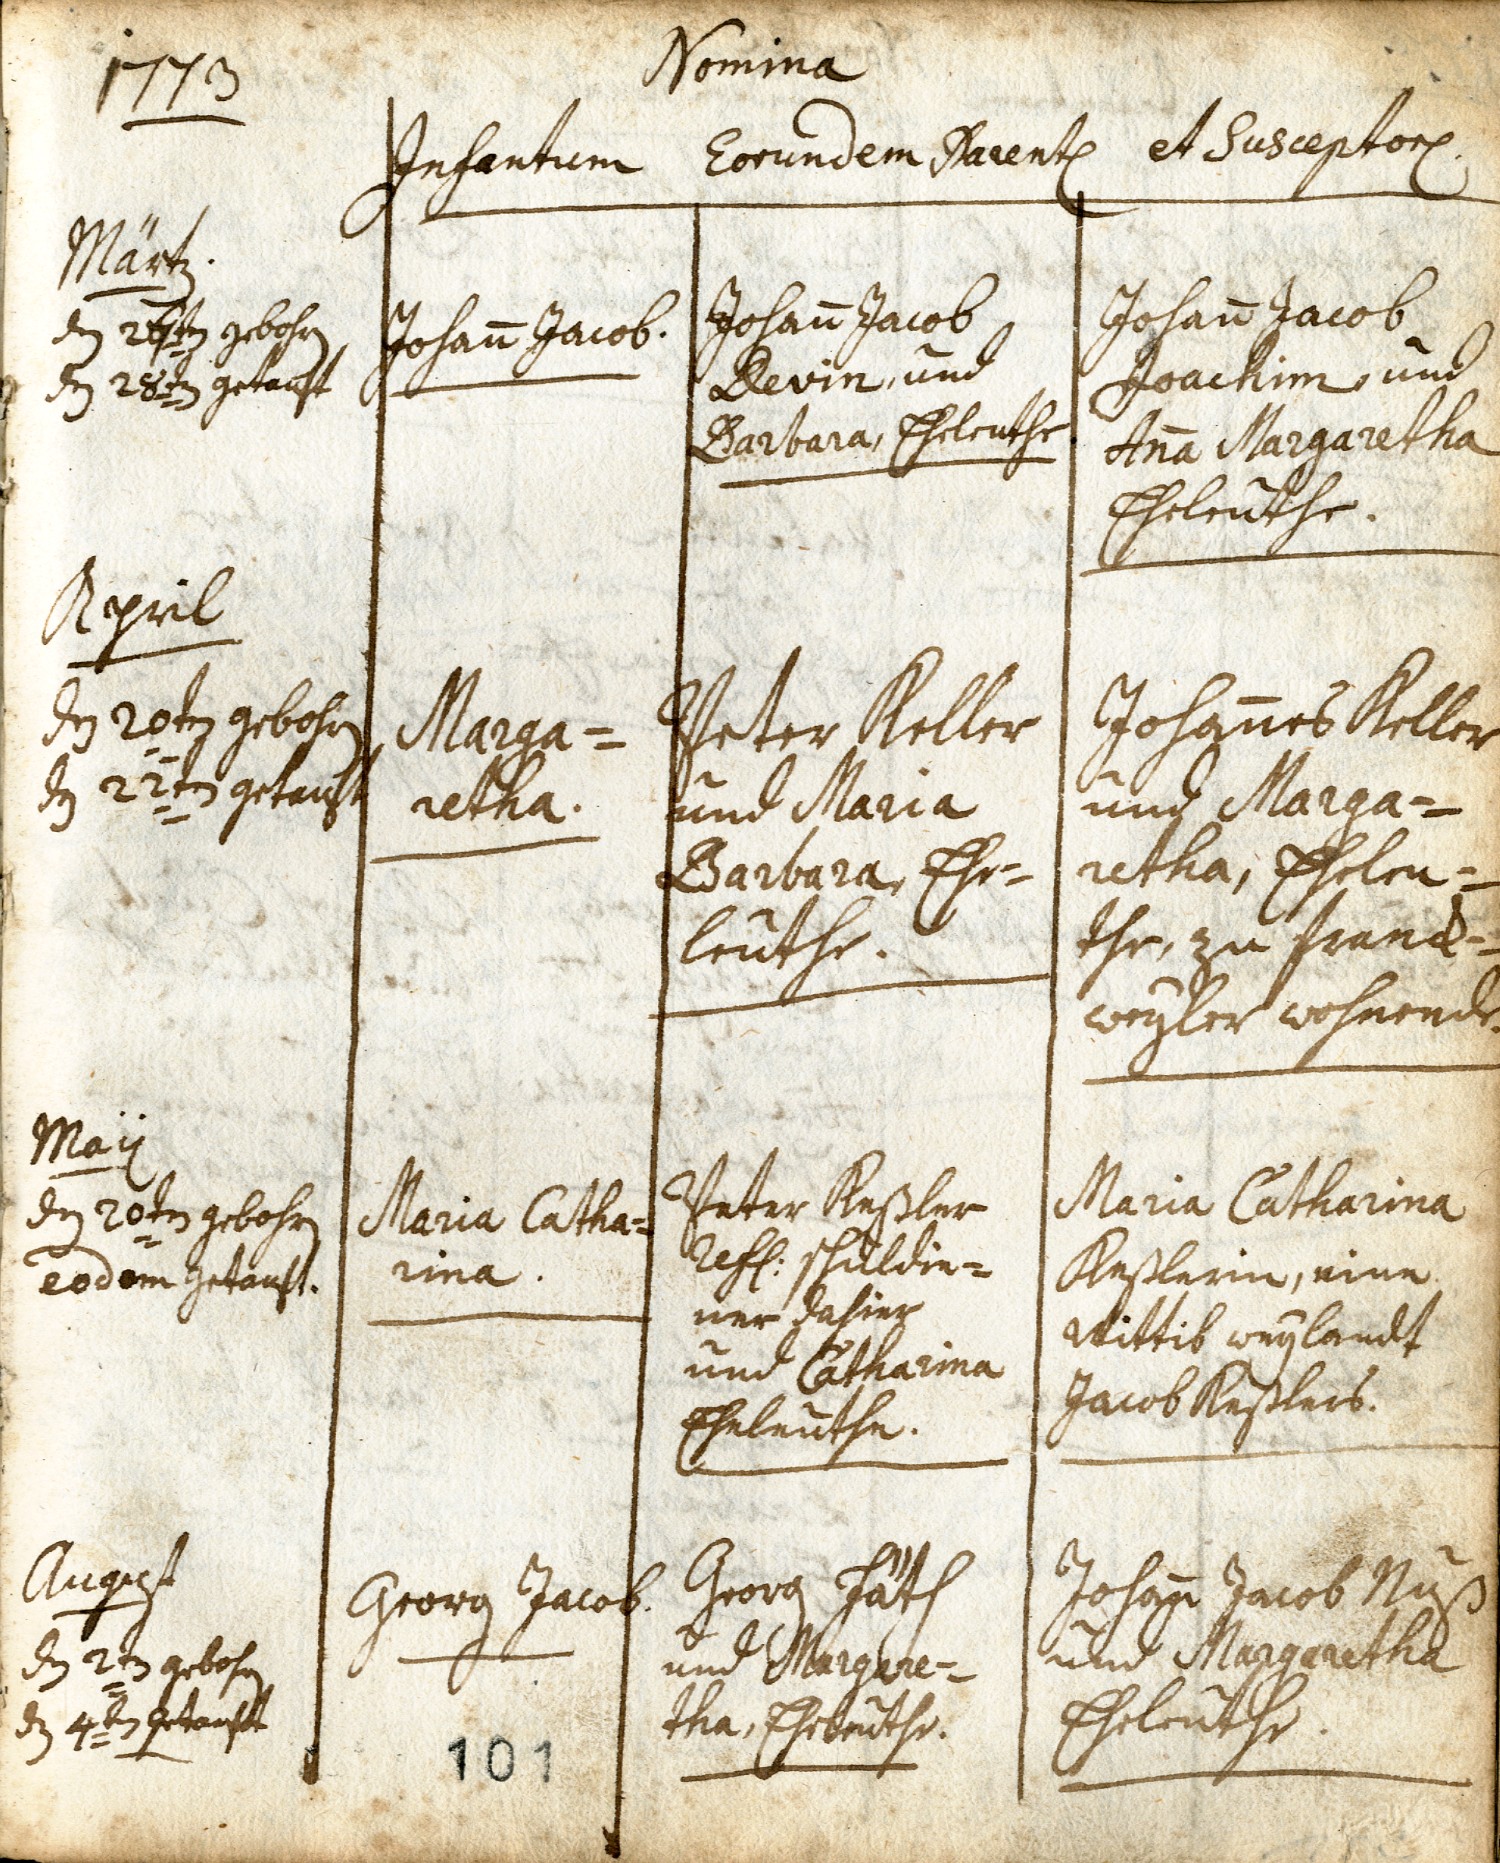 1773
Nomina
Infantum
Eorundem Parent
et Susceptor
Märtz.
den 26ten gebohrn
den 28ten getauft
Johann Jacob.
Johann Jacob
Devin, und
Barbara, Eheleuthe
Johann Jacob
Joachim, und
Anna Margaretha
Eheleuthe.
April
den 20ten gebohrn
den 22ten getauft
Marga=
retha.
Peter Keller
und Maria
Barbara, Ehe=
leuthe.
Johannes Keller
und Marga=
retha, Eheleu=
the, zu franck=
weyler wohnende.
Maij
den 20ten gebohrn
eodem getauft.
Maria Catha=
rina.
Peter Keßler
ref: schuldie=
ner dahier
und Catharina
Eheleuthe.
Maria Catharina
Keßlerin, eine
Wittib weylandt
Jacob Keßlers.
August
den 2ten gebohrn
den 4ten getauft
Georg Jacob.
Georg
und Margare=
tha, Eheleuthe.
Johann Jacob Nuß
und Margaretha
Eheleuthe.
101